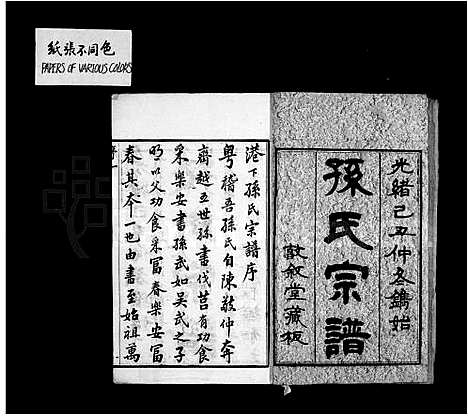 紙張不同色
PAPERS OF VARIOUS COLORS
光緒己丑仲冬鐫始
孫氏宗譜
敦敘堂藏板
港下孫氏宗譜序
粵稽吾孫氏自陳敬仲奔
齊越五世孫書伐莒有功食
采樂安書孫武如吳武之子
明以父功食采富春樂安富
春其本一也由書至始祖萬